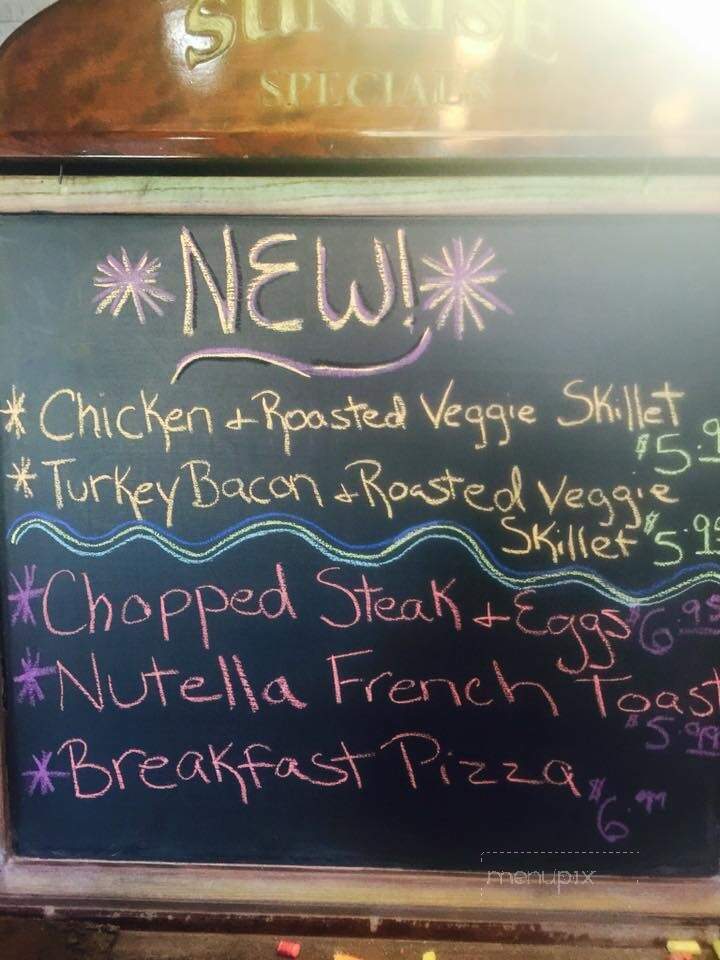 SUNRISE
SPECIALS
*NEW!*
* Chicken + Roasted Veggie Skillet
$5.9
* Turkey Bacon + Roasted Veggie
Skillet $5.95
* Chopped Steak + Eggs $6.95
* Nutella French Toast
$5.99
* Breakfast Pizza
$6.
menupix